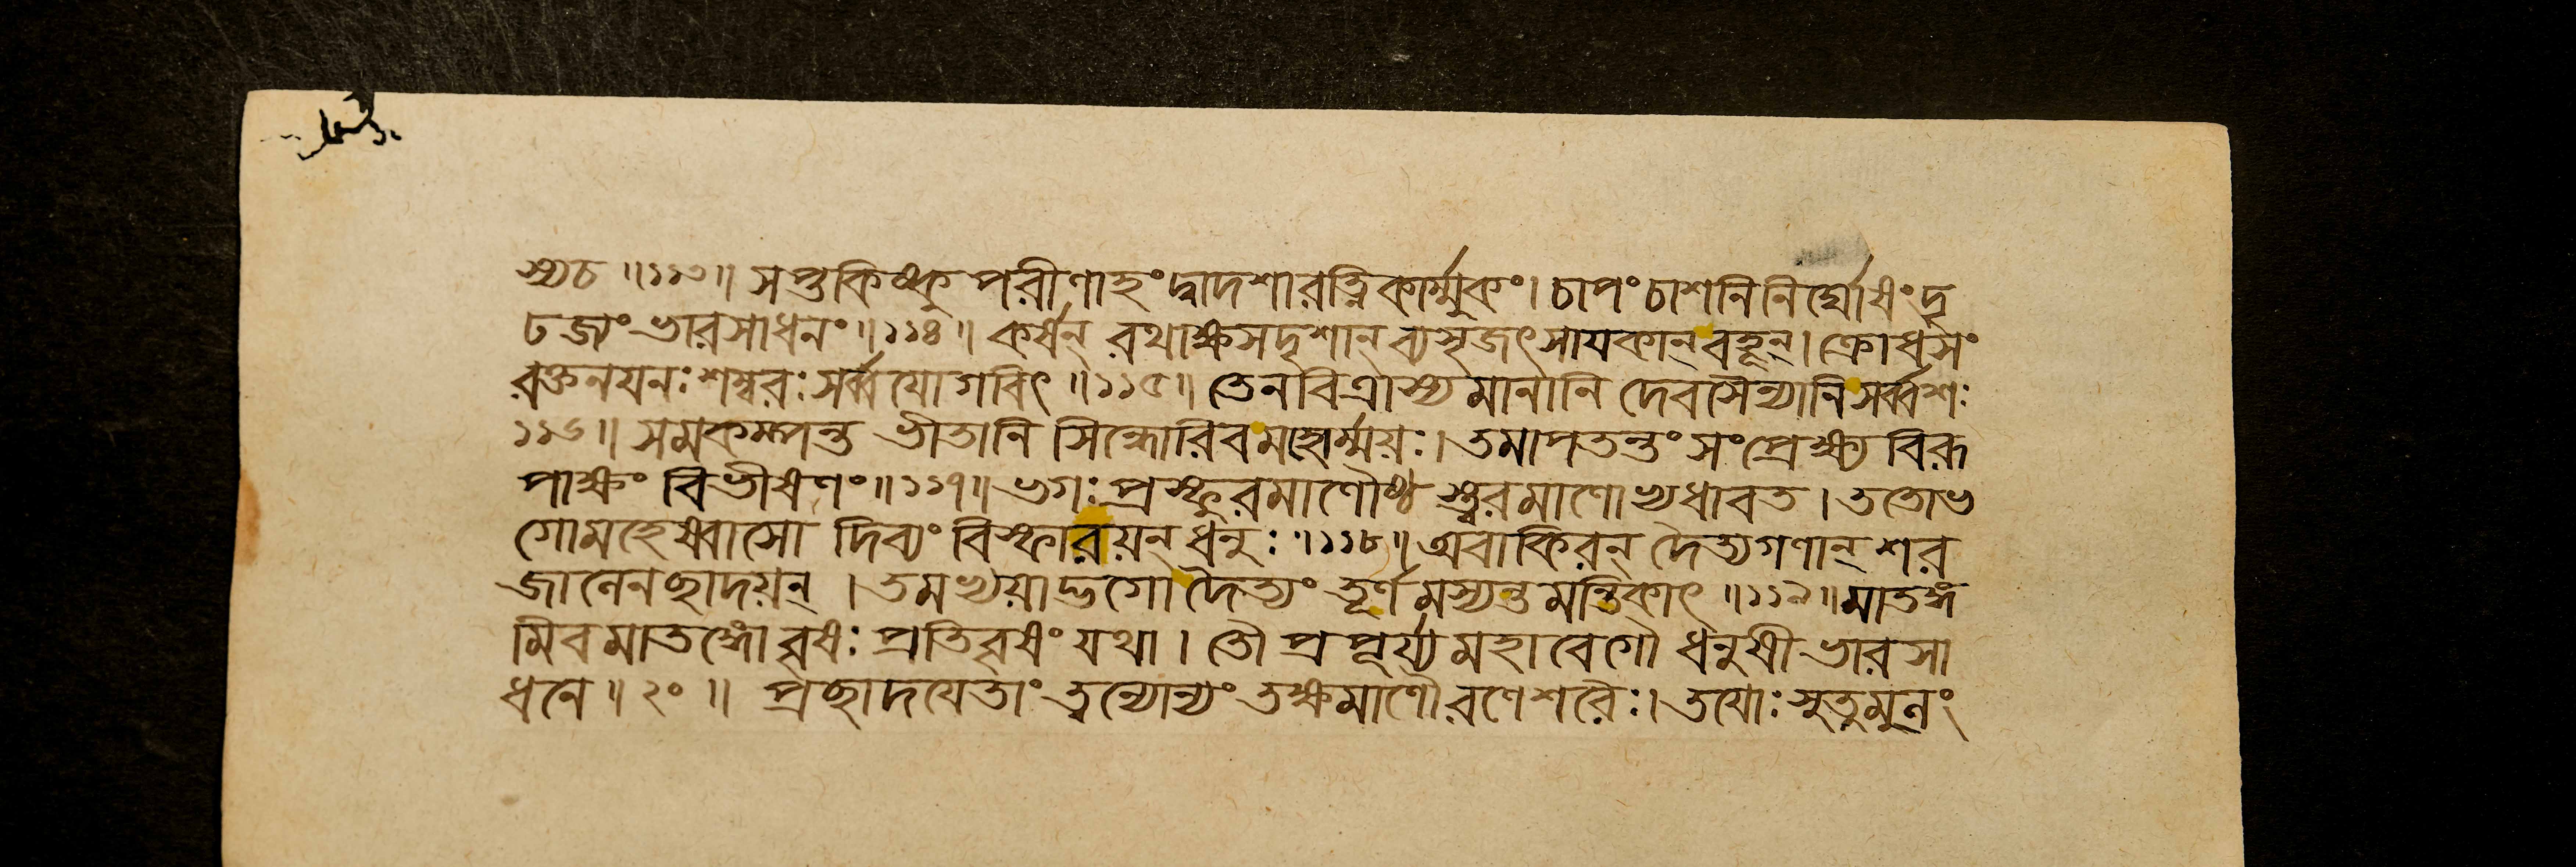 স্যচ ॥১১৩॥ সপ্তকিষ্কু পরীণাহং দ্বাদশারত্নিকার্ম্মুকং। চাপং চাশনিনির্ঘোষং দৃ
ঢজ্যং ভারসাধনং ॥১১৪॥ কর্ষন্ রথাক্ষসদৃশান্ ব্যসৃজৎ সাযকান্ বহূন্। ক্রোধসং
রক্তনযনঃ শম্বরঃ সর্ব্বযোগবিৎ ॥১১৫॥ তেন বিত্রাস্য মানানি দেবসৈন্যানি সর্ব্বশঃ
১১৬॥ সমকম্পন্ত ভীতানি সিন্ধোরিব মহোর্ম্ময়ঃ। তমাপতন্তং সংপ্রেক্ষ্য বিরূ
পাক্ষং বিভীষণং ॥১১৭॥ ভগঃ প্রস্ফুরমাণৌষ্ঠ স্ত্বরমাণোভ্যধাবত। ততোভ
গোমহেষ্বাসো দিব্যং বিস্ফারয়ন্ ধনুঃ ॥১১৮॥ অবাকিরন্ দৈত্যগণান্ শর
জানেনছাদয়ন্ । তমভ্যয়াদ্ভগো দৈত্যং তূর্ণমস্যন্তমন্তিকাৎ ॥১১৯॥ মাতঙ্গ
মিবমাতঙ্গো বৃষঃ প্রতিবৃষং যথা। তৌ প্রপূর্য্য মহাবেগৌ ধনুষী ভারসা
ধনে ॥২০॥ প্রছাদযেতাং ত্বন্যোন্যং তক্ষমাণৌ রণেশরৈঃ। তযোঃ সুতুমুলং